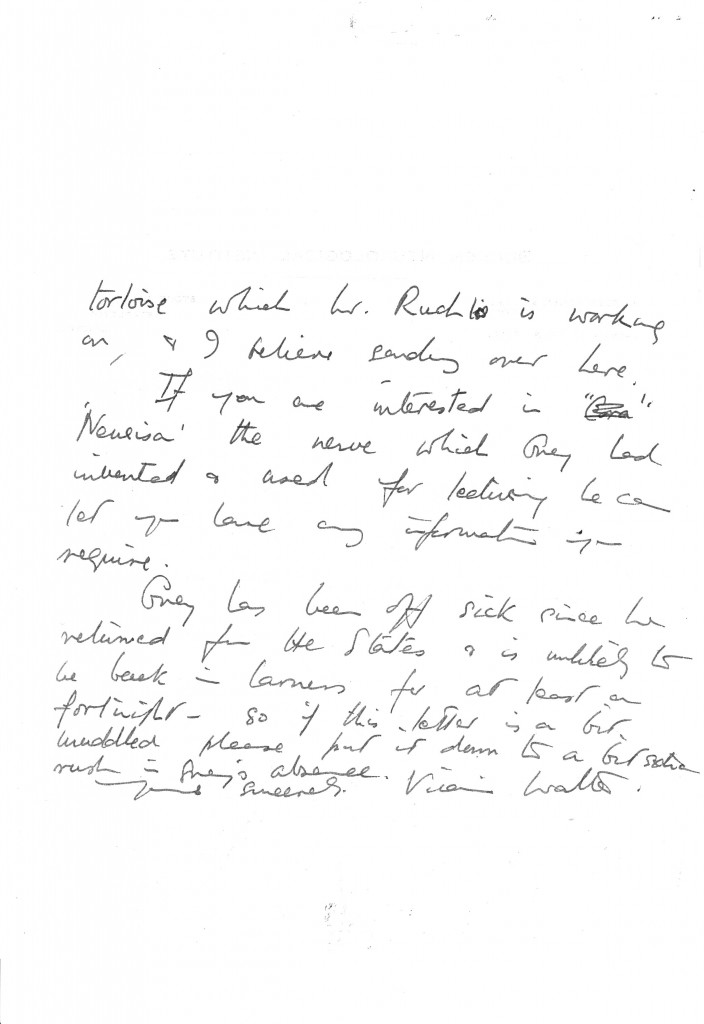 tortoise which Mr. Ruchlis is working
on, & I believe sending over here.
If you are interested in
'Neurisa' the nerve which Grey had
invented & used for lecturing he can
let you have any information you
require.
Grey has been off sick since he
returned from the States & is unlikely to
be back in harness for at least a
fortnight - so if this letter is a bit
muddled please put it down to a bit
rush in Grey's absence.
Yours sincerely. Vivian Walter.